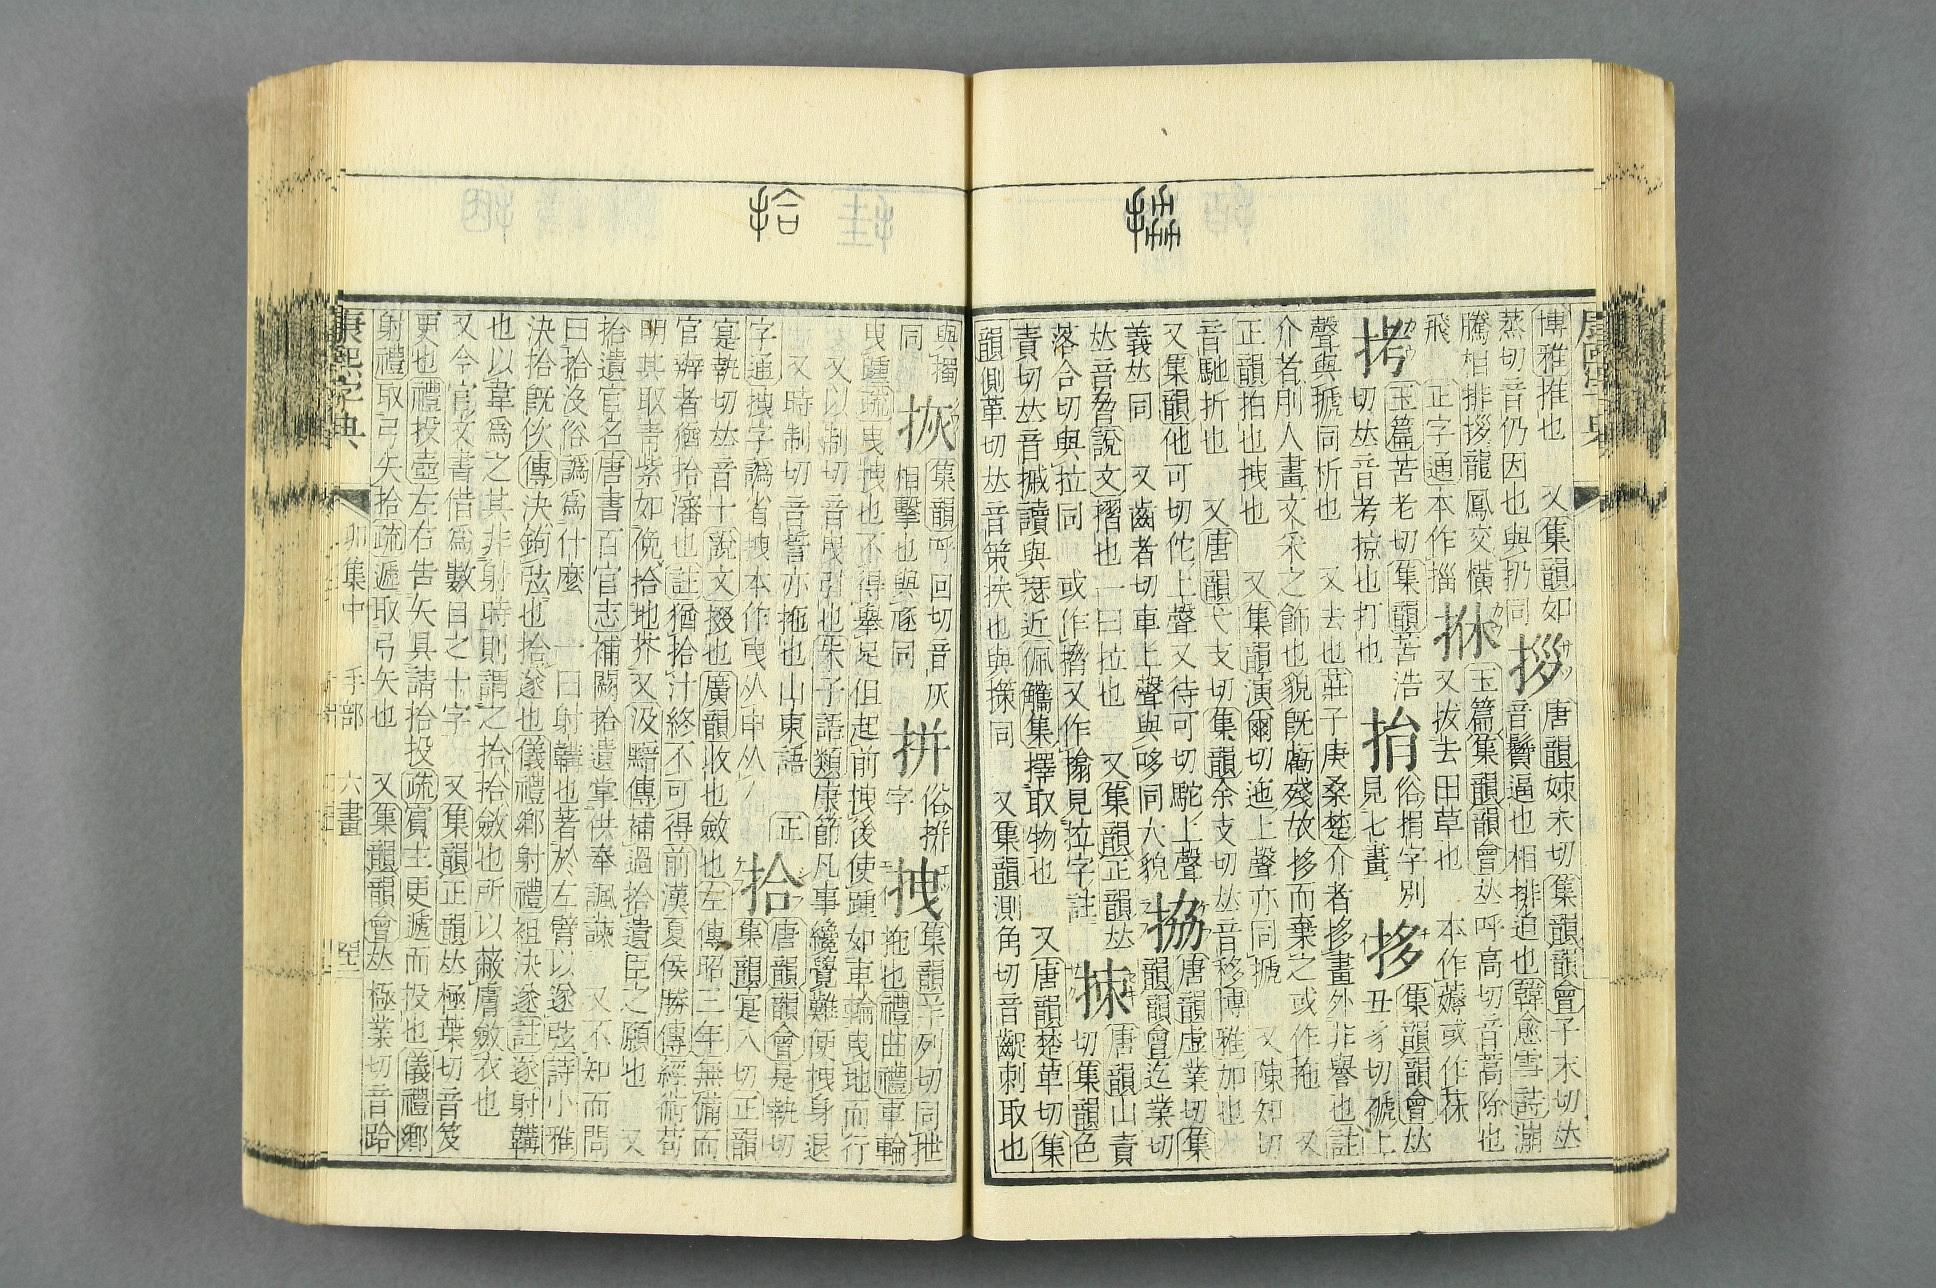 博雅推也 又集韻如
蒸切音仍因也與扔同
拶
唐韻姊末切集韻韻會子末切𠀤
音鬢逼也相排迫也韓愈雪詩漰
騰相排拶龍鳳交橫
飛 正字通本作㨖
玉篇集韻韻會𠀤呼高切音蒿除也
又拔去田草也 本作薅或作茠
拷
玉篇苦老切集韻苦浩
切𠀤音考掠也打也
俗捐字別
見七畫
拸
集韻韻會𠀤
丑豸切褫上
聲與搋同析也 又去也莊子庚桑楚介者拸畫外非譽也註
介者刖人畫文采之飾也貌旣虧殘故拸而棄之或作拖 又
正韻拍也拽也 又集韻演爾切迤上聲亦同搋 又陳知切
音馳折也 又唐韻弋支切集韻余支切𠀤音移博雅加也
又集韻他可切佗上聲又待可切駝上聲
義𠀤同 又齒者切車上聲與哆同大貌
拹
唐韻虛業切集
韻韻會迄業切
𠀤音脅說文摺也一曰拉也 又集韻正韻𠀤
落合切與拉同 或作搚又作㩉見拉字註
拺
唐韻山責
切集韻色
責切𠀤音摵讀與瑟近佩觿集擇取物也 又唐韻楚革切集
韻側革切𠀤音策扶也與策同 又集韻測角切音齪刺取也
拾
與擉
同
拻
集韻呼回切音灰
相擊也與豗同
拼
俗拚
字
拽
集韻羊列切同抴
拖也禮曲禮車輪
曳踵疏曳拽也不得舉足但起前拽後使踵如車輪曳地而行
又以制切音曳引也朱子語類康節凡事纔覺難便拽身退
又時制切音誓亦拖也山東語 正
字通拽字譌省拽本作曳从申从丿
拾
唐韻韻會是執切
集韻寔入切正韻
寔執切𠀤音十說文掇也廣韻收也斂也左傳昭三年無備而
官辦者猶拾瀋也註猶拾汁終不可得前漢夏侯勝傳經術苟
明其取靑紫如俛拾地芥又汲黯傳補過拾遺臣之願也 又
拾遺官名唐書百官志補闕拾遺掌供奉諷諫 又不知而問
曰拾沒俗譌爲什麼 一曰射韝也著於左臂以遂弦詩小雅
決拾旣佽傳決鉤弦也拾遂也儀禮鄉射禮袒決遂註遂射韝
也以韋爲之其非射時則謂之拾拾斂也所以蔽膚斂衣也
又今官文書借爲數目之十字 又集韻正韻𠀤極葉切音笈
更也禮投壺左右告矢具請拾投疏賔主更遞而投也儀禮鄉
射禮取弓矢拾疏遞取弓矢也 又集韻韻會𠀤極業切音跲
康熙字典
卯集中 手部 六畫